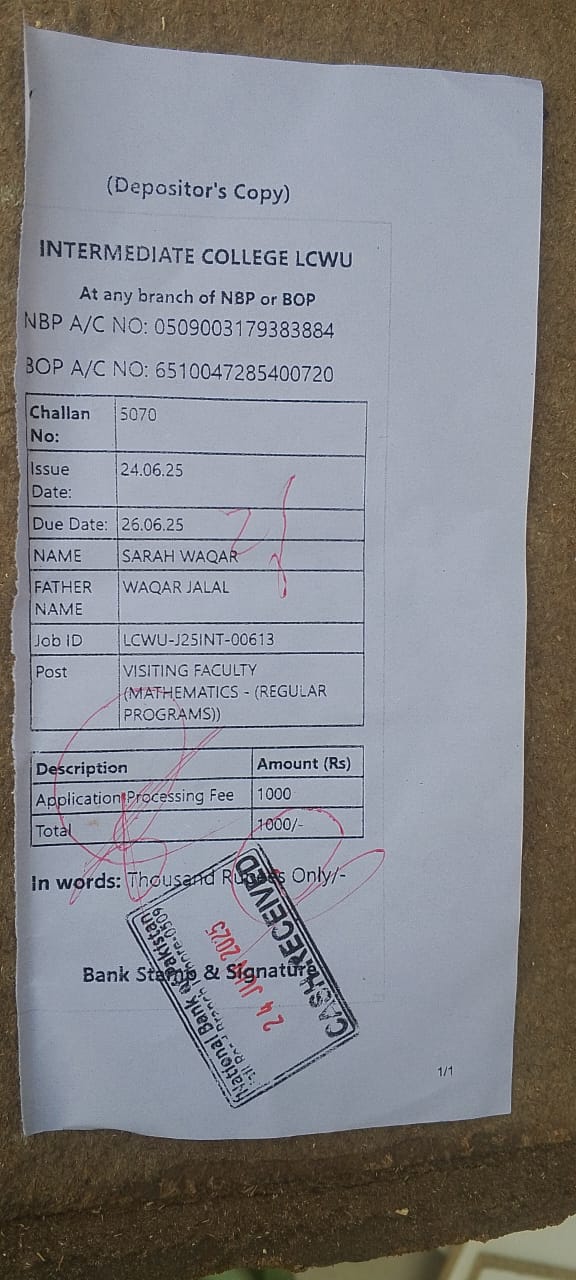 (Depositor's Copy)
INTERMEDIATE COLLEGE LCWU
At any branch of NBP or BOP
NBP A/C NO: 0509003179383884
BOP A/C NO: 6510047285400720
Challan No: 5070
Issue Date: 24.06.25
Due Date: 26.06.25
NAME SARAH WAQAR
FATHER NAME WAQAR JALAL
Job ID LCWU-J25INT-00613
Post VISITING FACULTY
(MATHEMATICS - (REGULAR
PROGRAMS))
Description Amount (Rs)
Application Processing Fee 1000
Total 1000/-
In words: Thousand Rupees Only/-
Bank Stamp & Signature
National Bank of Pakistan
24 JUN 2025
CASH RECEIVED
1/1